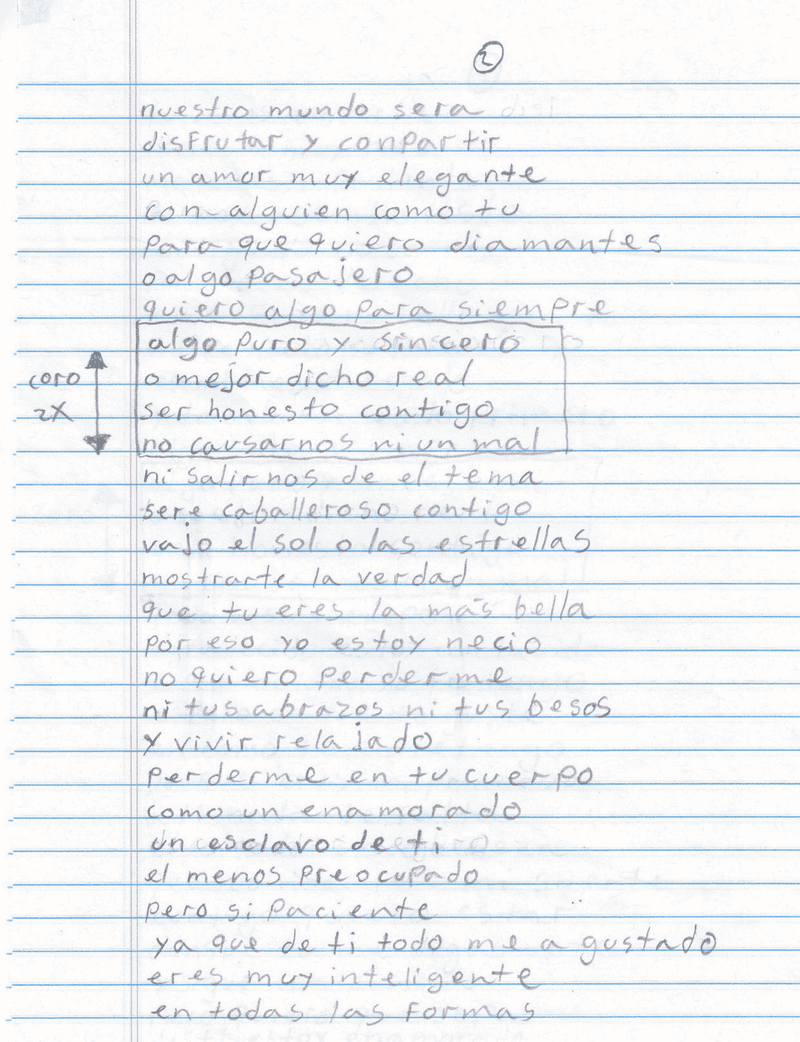 2
nuestro mundo sera
disfrutar y conpartir
un amor muy elegante
con alguien como tu
para que quiero diamantes
o algo pasajero
quiero algo para siempre
algo puro y sincero
coro
2X
o mejor dicho real
ser honesto contigo
no causarnos ni un mal
ni salirnos de el tema
sere caballeroso contigo
vajo el sol o las estrellas
mostrarte la verdad
que tu eres la mas bella
por eso yo estoy necio
no quiero perderme
ni tus abrazos ni tus besos
y vivir relajado
perderme en tu cuerpo
como un enamorado
un esclavo de ti
el menos preocupado
pero si paciente
ya que de ti todo me a gustado
eres muy inteligente
en todas las formas